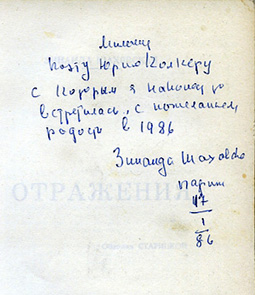 Милому
поэту Юрию Колкеру
с которым я наконец то
встретилась, с пожеланием
радости в 1986
Зинаида Шаховская
Париж
17
1
86
ОТРАЖЕНИЯ